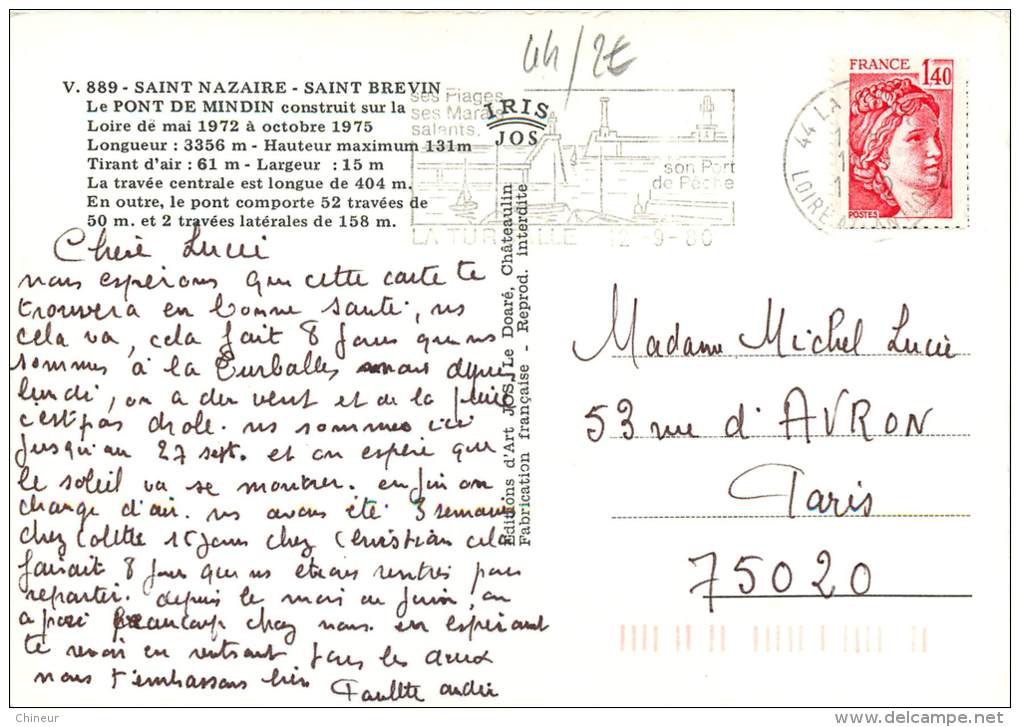 44/2€
V. 889 - SAINT NAZAIRE - SAINT BREVIN
Le PONT DE MINDIN construit sur la
Loire de mai 1972 à octobre 1975
Longueur : 3356 m - Hauteur maximum 131m
Tirant d'air : 61 m - Largeur : 15 m
La travée centrale est longue de 404 m.
En outre, le pont comporte 52 travées de
50 m. et 2 travées latérales de 158 m.
IRIS
JOS
ses Plages
ses Marais
salants.
son Port
de Pêche
LA TURBALLE 12-9-80
FRANCE 1,40
POSTES
44 LA
LOIRE
Editions d'Art JOS, Le Doaré, Châteaulin
Fabrication française - Reprod. interdite
Chere Lucie
nous espérons que cette carte te
trouvera en bonne santé, ns
cela va, cela fait 8 jours que ns
sommes à la Turballe mais depuis
lundi, on a du vent et de la pluie
c'est pas drole. ns sommes ici
jusqu'au 27 sept. et on espère que
le soleil va se montrer. enfin on
change d'air. ns avons été 3 semaines
chez Colette 15 jours chez Christian cela
faisait 8 jours que ns étions rentrés pour
repartir. depuis le mois de juin, on
a pas beaucoup chez nous. en espérant
te revoir en rentrant tous les deux
nous t'embrassons bien Paulette andré
Madame Michel Lucie
53 rue d'AVRON
Paris
75020
Chineur
www.delcampe.net